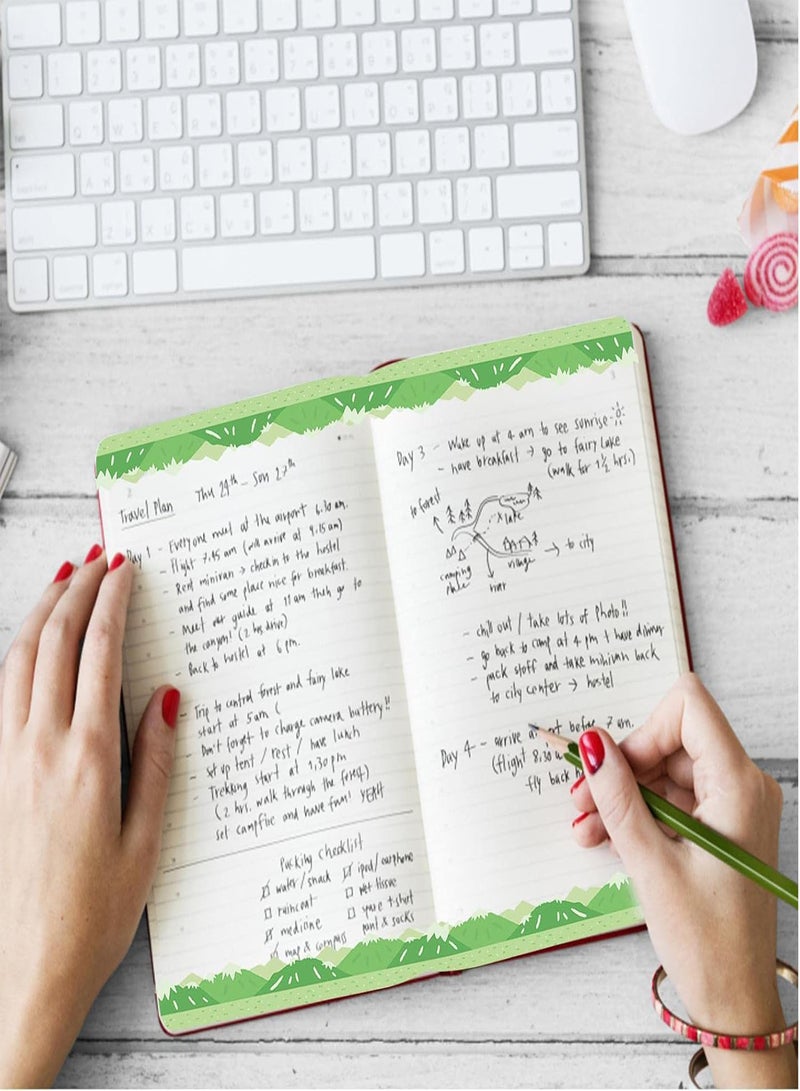 Travel Plan Thu 24th - Sun 27th
Day 1 - Everyone meet at the airport 6.30 am.
- Flight 7.45 am (will arrive at 9.15 am)
- Rent minivan → check in to the hostel
and find some place nice for breakfast.
- Meet our guide at 11 am then go to
the canyon! (2 hrs drive)
- Back to hostel at 6 pm.
- Trip to central forest and fairy lake
start at 5 am (
- Don't forget to charge camera battery!!
- set up tent / rest / have lunch
- Trekking start at 1.30 pm
(2 hrs. walk through the forest)
set campfire and have fun! YEAH
Packing Checklist
water / snack
raincoat
medicine
map & compass
ipod / earphone
wet tissue
spare t-shirt
pant & socks
Day 3 - Wake up at 4 am to see sunrise
- have breakfast → go to fairy lake
(walk for 1 1/2 hrs.)
to forest
x lake
camping
place
village
→ to city
- chill out / take lots of photo!!
- go back to camp at 4 pm + have dinner
- pack stuff and take minivan back
to city center → hostel
Day 4 - arrive before 7 am.
(flight 8.30
fly back